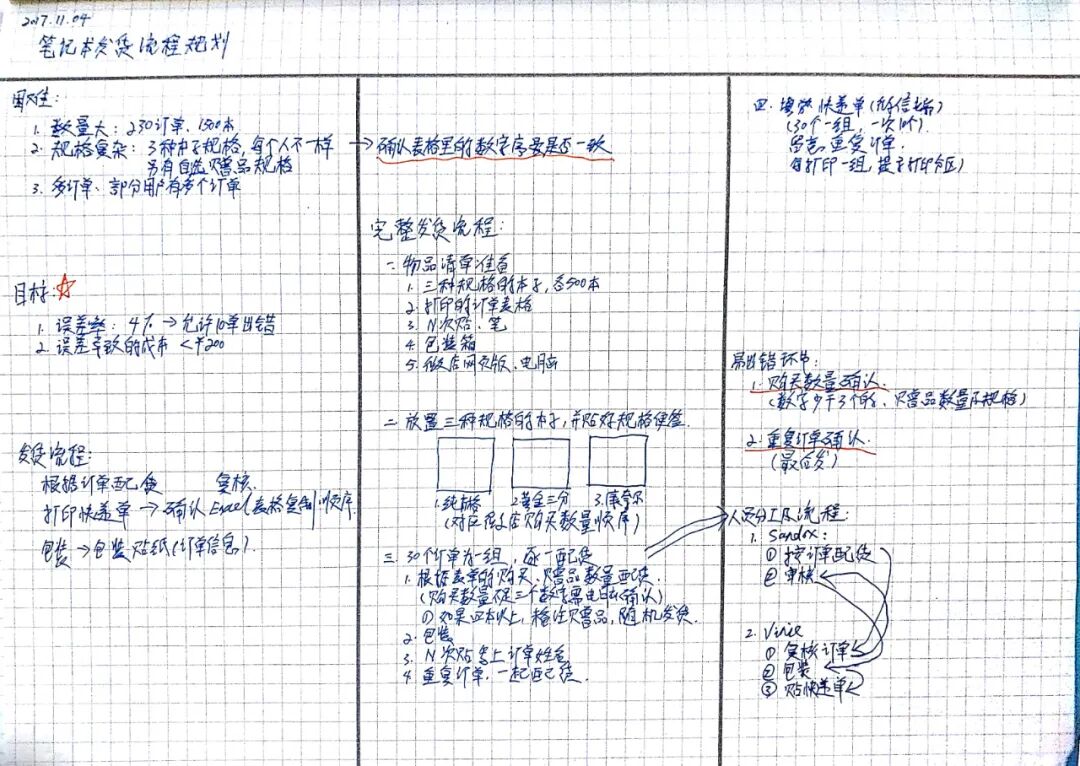 2017.11.04
笔记本发货流程规划
困难:
1. 数量大: 230订单、1500本
2. 规格复杂: 3种本子规格, 每个人不一样
另有自选赠品规格
3. 多订单、部分用户有多个订单
目标: ☆
1. 误差率: 4% → 允许10单出错
2. 误差导致的成本 < ¥200
发货流程:
根据订单配货 复核.
打印快递单 → 确认Excel表格复制顺序.
包装 → 包装贴纸(订单信息).
→ 确认表格里的数字序号是否一致
完整发货流程:
一. 物品清单准备
1. 三种规格的本子, 各500本
2. 打印的订单表格
3. N次贴、笔
4. 包装箱
5. 微店网页版、电脑
二 放置三种规格的本子, 并贴好规格便签.
1. 纯方格 2. 黄金三分 3. 康奈尔
(对应微店购买数量顺序)
三. 30个订单为一组, 逐一配货
1. 根据表单的购买、赠品数量配货.
(购买数量不足三个数字需电脑确认)
① 如果五本以上, 格注赠品, 随机发货.
2. 包装
3. N次贴写上订单姓名
4. 重复订单, 一起配货.
四. 填放快递单
(30个一组, 一次10个).
留意重复订单.
每打印一组,
易出错环节:
1. 购买数量确认.
(数字少于3个的、赠品数量不规格)
2. 重复订单确认.
(最后发)
人员分工及流程:
1. Sandox:
① 按订单配货
② 审核
2. Vivie
① 复核订单
② 包装
③ 贴快递单